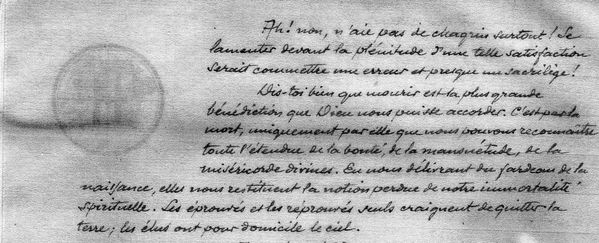 Ah! non, n'aie pas de chagrin surtout! Se
lamenter devant la plénitude d'une telle satisfaction
serait commettre une erreur et presque un sacrilège!
Dis-toi bien que mourir est la plus grande
bénédiction que Dieu nous puisse accorder. C'est par la
mort, uniquement par elle que nous pouvons reconnaître
toute l'étendue de la bonté, de la mansuétude, de la
miséricorde divines. En nous délivrant du fardeau de la
naissance, elles nous restituent la notion perdue de notre immortalité
spirituelle. Les éprouvés et les réprouvés seuls craignent de quitter la
terre; les élus ont pour domicile le ciel.